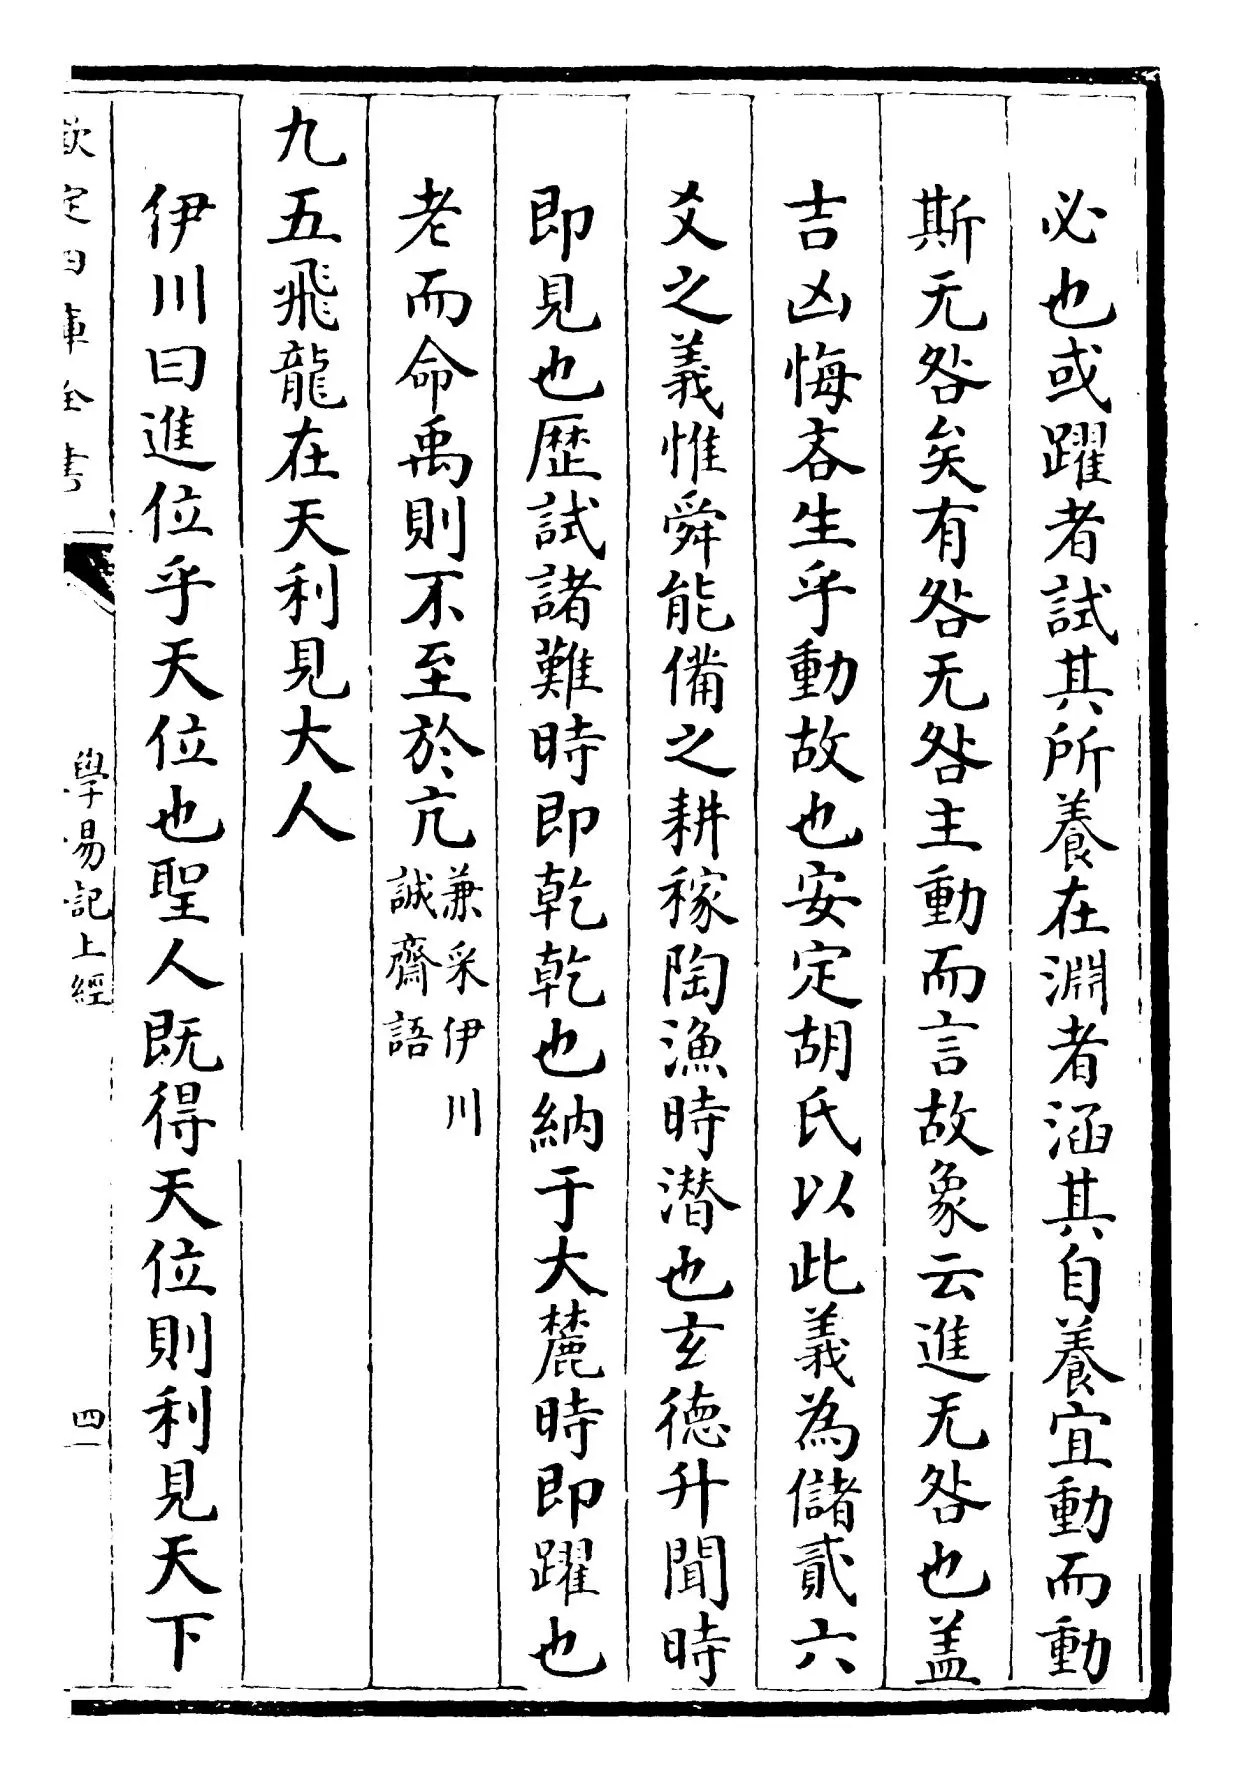 必也或躍者試其所養在淵者涵其自養宜動而動
斯无咎矣有咎无咎主動而言故象云進无咎也盖
吉凶悔吝生乎動故也安定胡氏以此義為儲貳六
爻之義惟舜能備之耕稼陶漁時潜也玄德升聞時
即見也歴試諸難時即乾乾也納于大麓時即躍也
老而命禹則不至於亢兼采伊川
誠齋語
九五飛龍在天利見大人
伊川曰進位乎天位也聖人既得天位則利見天下
欽定四庫全書
學易記上經
四